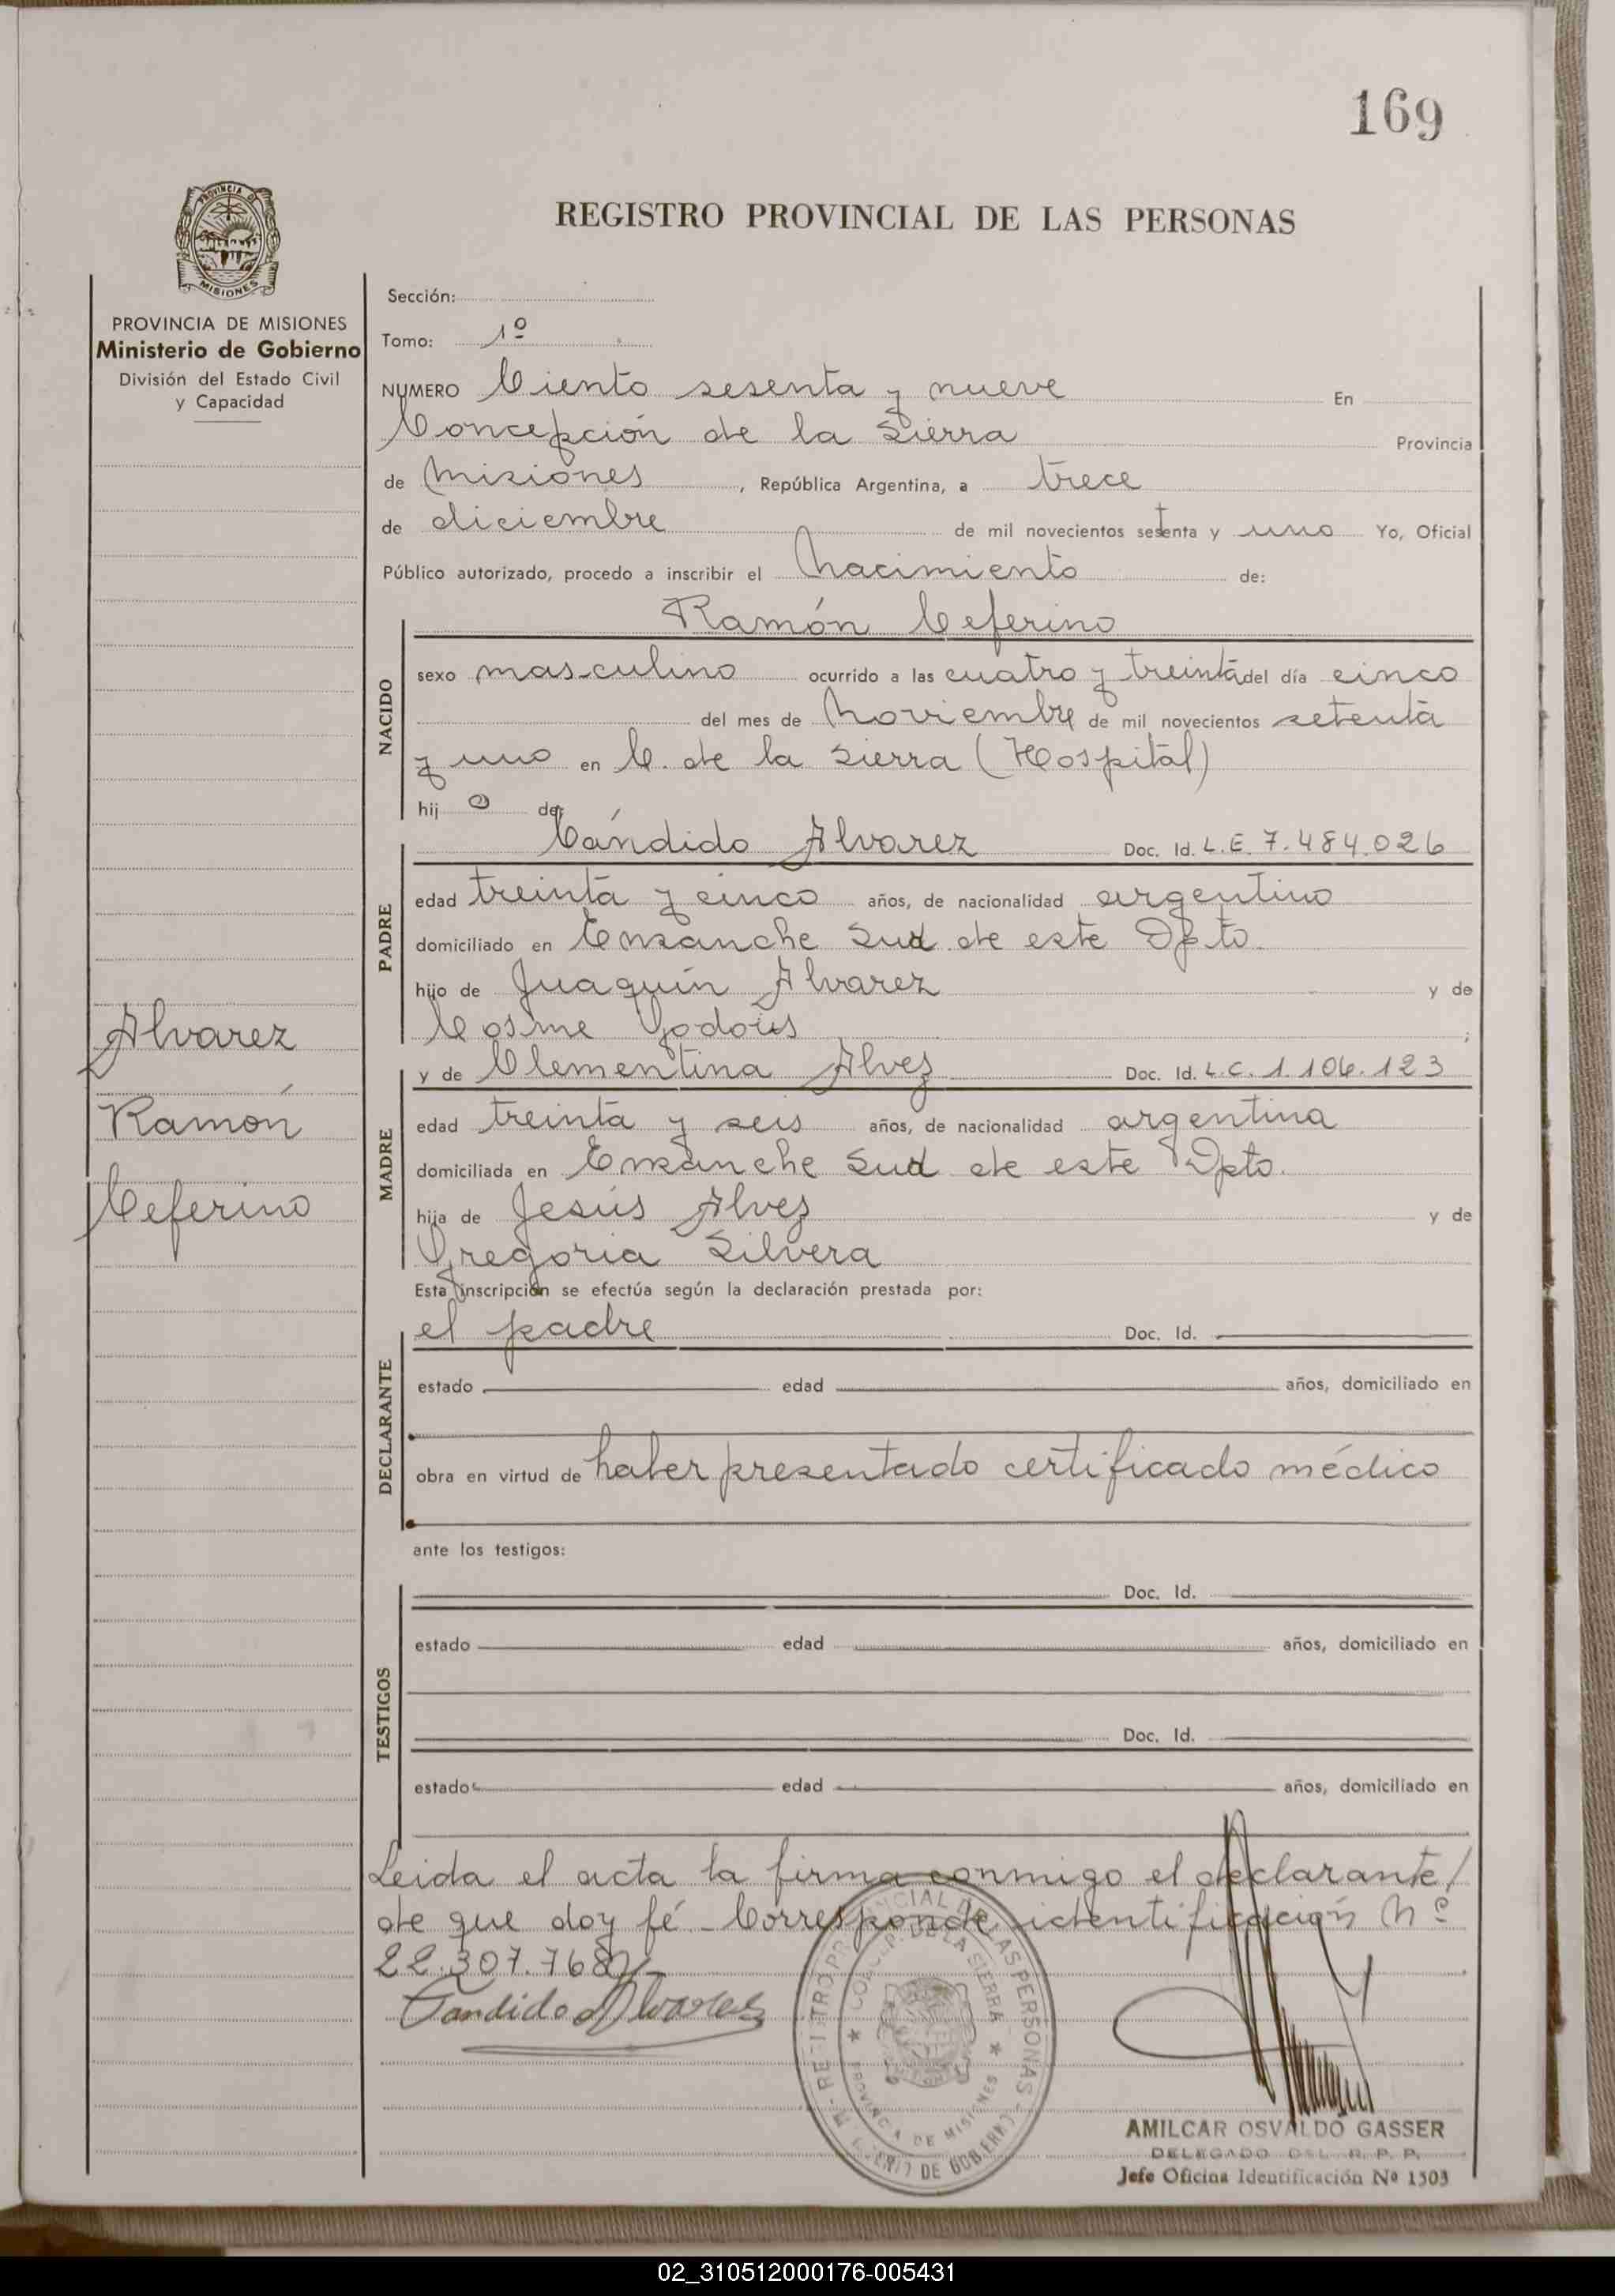 169
PROVINCIA DE
MISIONES
REGISTRO PROVINCIAL DE LAS PERSONAS
PROVINCIA DE MISIONES
Ministerio de Gobierno
División del Estado Civil
y Capacidad
Alvarez
Ramón
Ceferino
Sección:
Tomo: 1º
NUMERO Ciento sesenta y nueve En
Concepción de la Sierra Provincia
de Misiones, República Argentina, a trece
de diciembre de mil novecientos setenta y uno Yo, Oficial
Público autorizado, procedo a inscribir el Nacimiento de:
Ramón Ceferino
NACIDO
sexo masculino ocurrido a las cuatro y treinta del día cinco
del mes de Noviembre de mil novecientos setenta
y uno en C. de la Sierra (Hospital)
hij o de
Cándido Alvarez Doc. Id. L.E. 7.484.026
PADRE
edad treinta y cinco años, de nacionalidad argentino
domiciliado en Ensanche Sud de este Dpto.
hijo de Juaquín Alvarez y de
Cosme ;
y de Clementina Alvez Doc. Id. L.C. 1.106.123
MADRE
edad treinta y seis años, de nacionalidad argentina
domiciliada en Ensanche Sud de este Dpto.
hija de Jesús Alvez y de
Gregoria Silvera
Esta inscripción se efectúa según la declaración prestada por:
el padre Doc. Id.
DECLARANTE
estado edad años, domiciliado en
obra en virtud de haber presentado certificado médico
ante los testigos:
Doc. Id.
TESTIGOS
estado edad años, domiciliado en
Doc. Id.
estado edad años, domiciliado en
Leida el acta la firma conmigo el declarante/
de que doy fé - Corresponde identificación Nº
22.307.768
Candido Alvarez
AMILCAR OSVALDO GASSER
DELEGADO DEL R. P. P.
Jefe Oficina Identificación Nº 1303
02_310512000176-005431